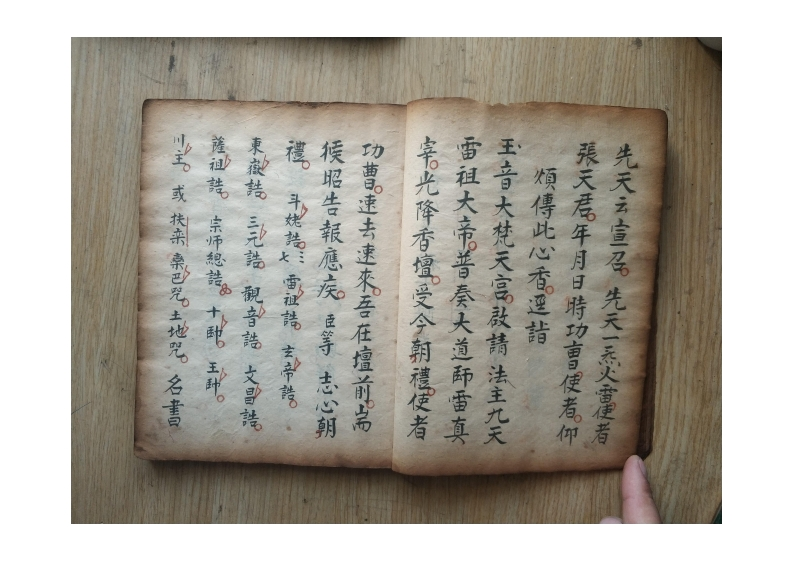 先天云宣召 先天一炁火雷使者
張天君年月日時功曹使者仰
煩傳此心香逕詣
玉音大梵天宮啟請法主九天
雷祖大帝普奏大道師雷真
宰光降香壇受今朝禮使者
功曹速去速來吾在壇前耑
候昭告報應疾 臣等 志心朝
禮 斗姥誥 雷祖誥 玄帝誥
東嶽誥 三元誥 觀音誥 文昌誥
薩祖誥 宗师總誥 十帥 王帥
川主 或 扶桒 欒巴咒 土地咒 名書